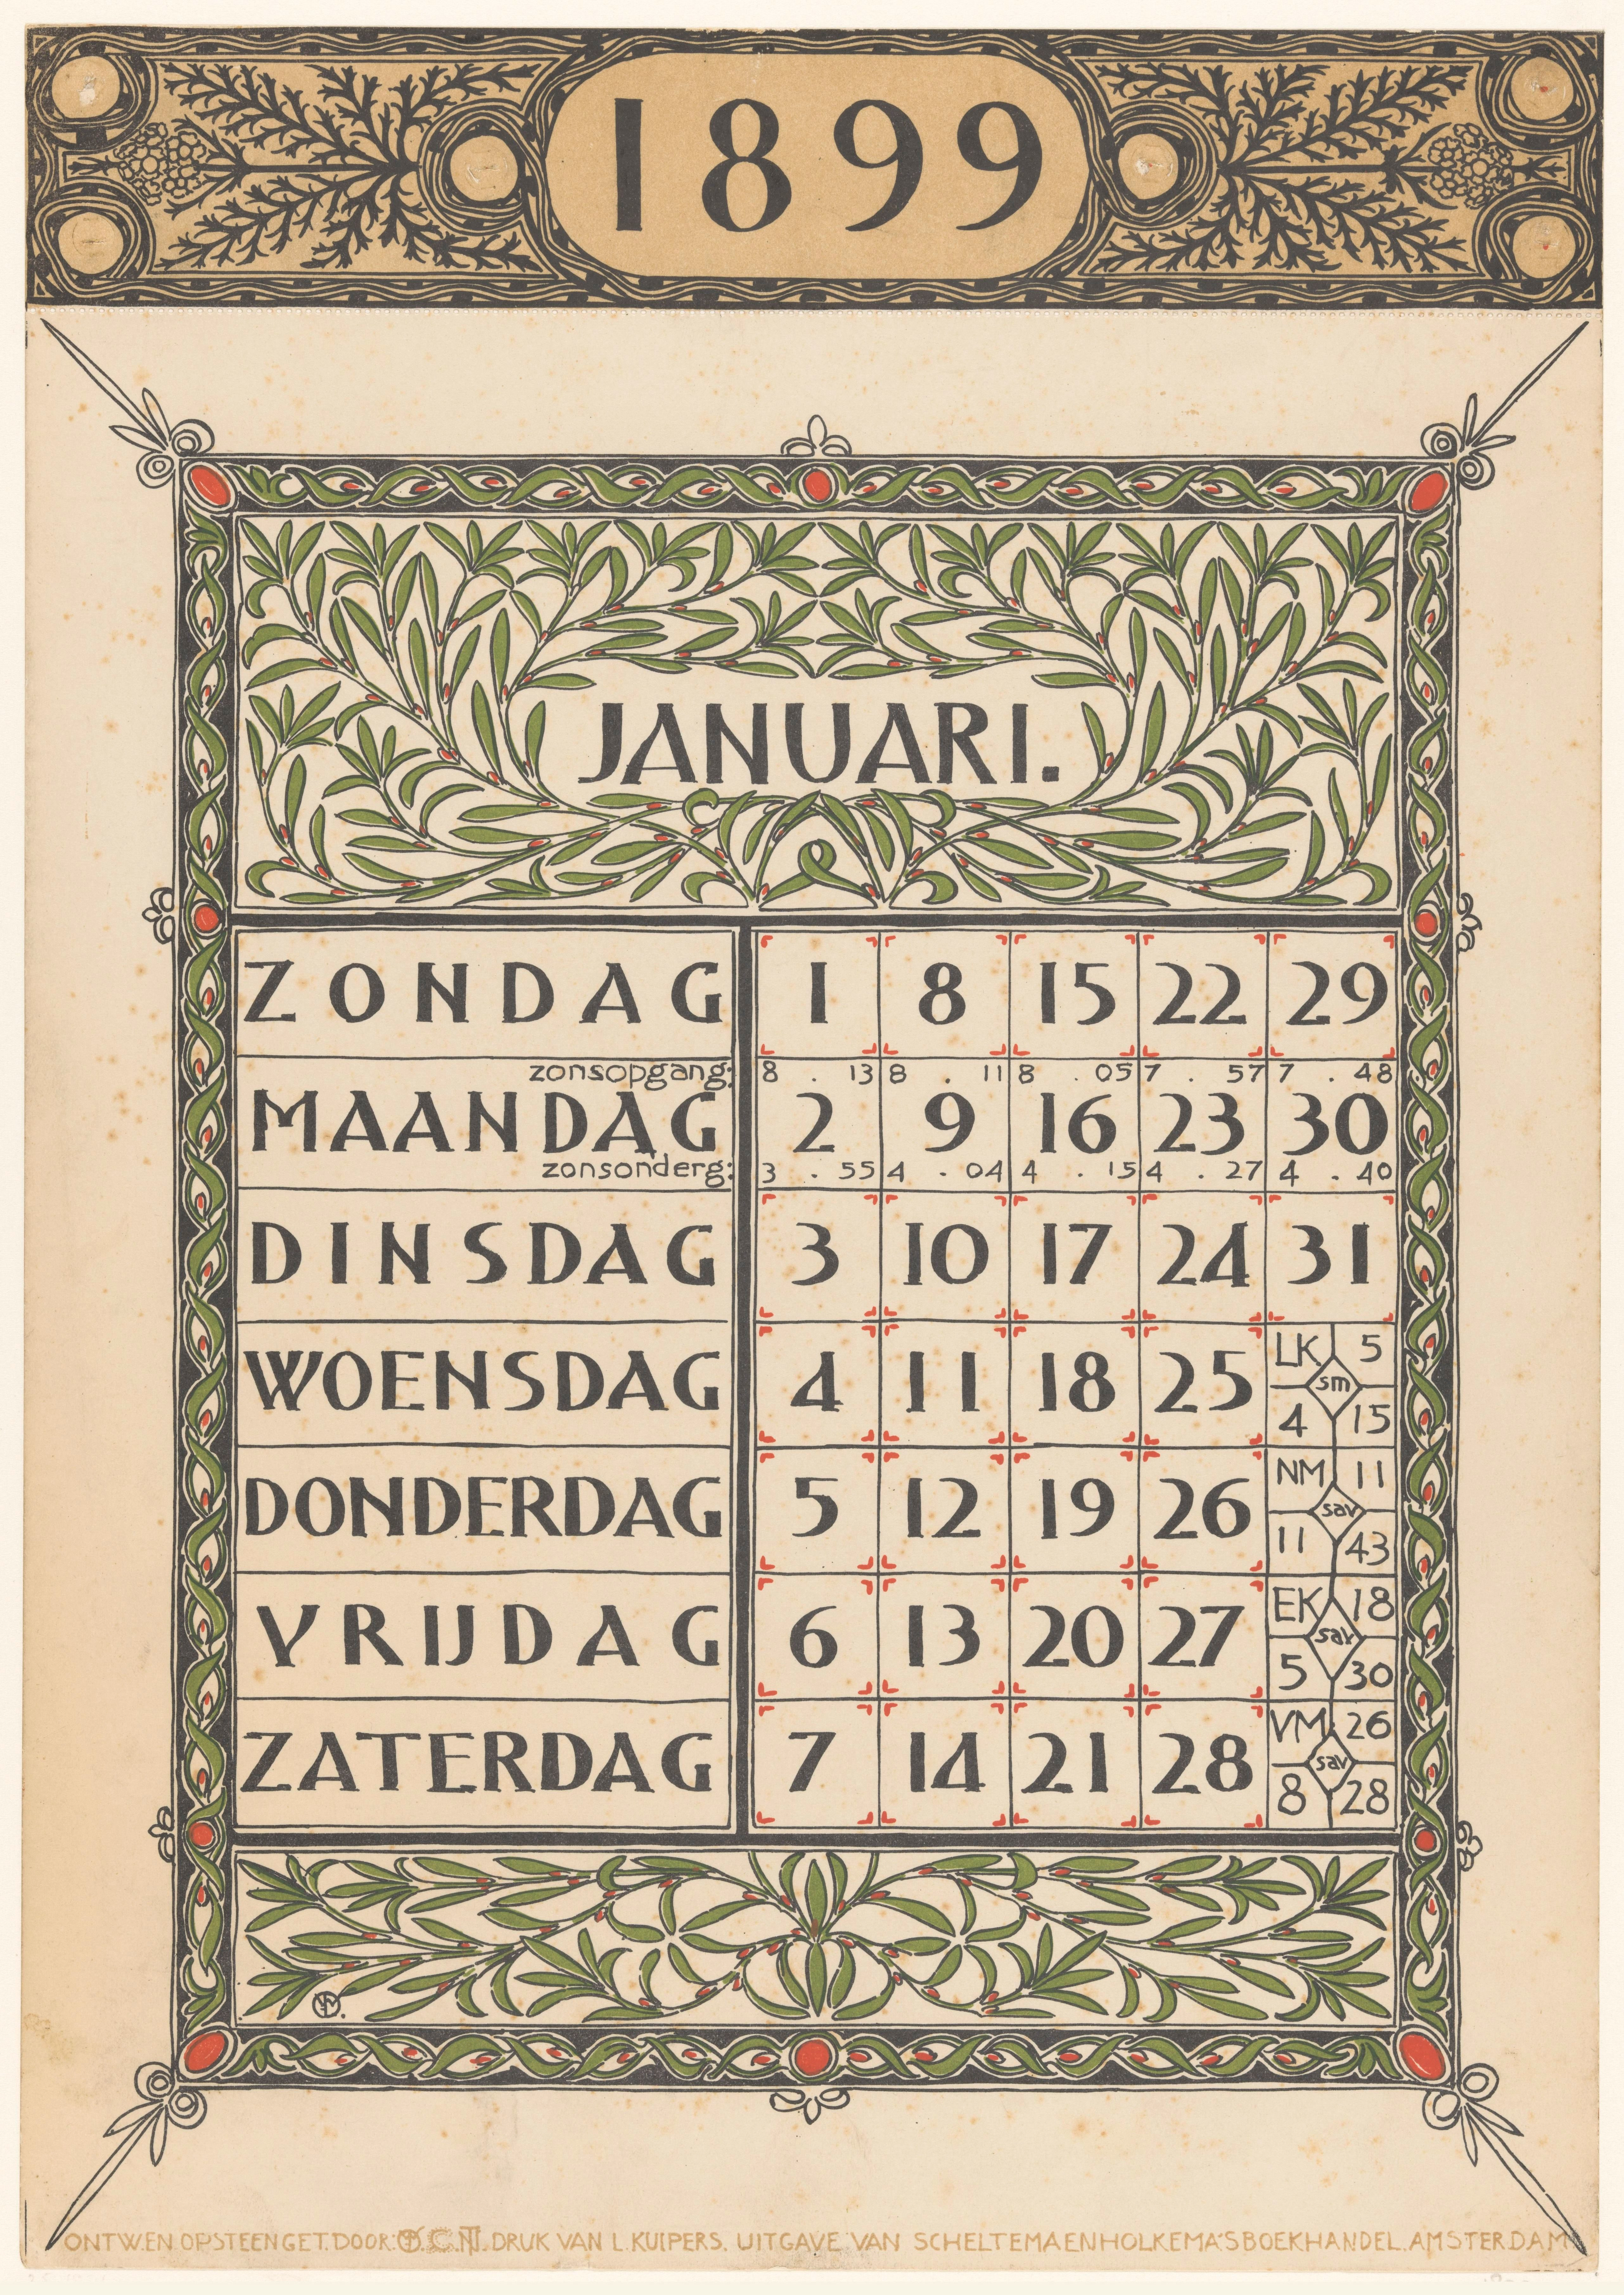 1899
JANUARI.
ZONDAG 1 8 15 22 29
zonsopgang: 8 . 13 8 . 11 8 . 05 7 . 57 7 . 48
MAANDAG 2 9 16 23 30
zonsonderg: 3 . 55 4 . 04 4 . 15 4 . 27 4 . 40
DINSDAG 3 10 17 24 31
WOENSDAG 4 11 18 25
LK 5
sm
4 15
DONDERDAG 5 12 19 26
NM 11
sav
11 43
VRIJDAG 6 13 20 27
EK 18
sav
5 30
ZATERDAG 7 14 21 28
VM 26
sav
8 28
ONTW. EN OP STEEN GET. DOOR: DRUK VAN L. KUIPERS. UITGAVE VAN SCHELTEMA EN HOLKEMA'S BOEKHANDEL. AMSTERDAM